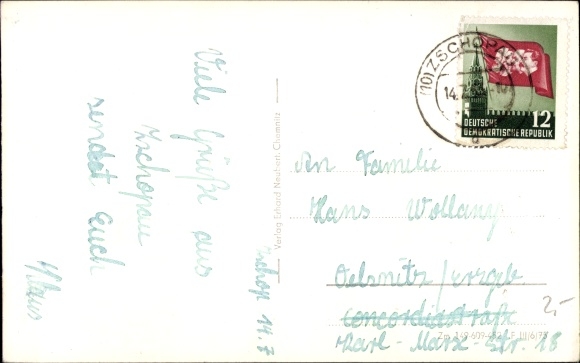 Viele Grüße aus
Zschopau
sendet Euch
Klaus
Zschop 14.7
Verlag Erhard Neubert, Chemnitz
(10) ZSCHOP
14.7
d
12
DEUTSCHE
DEMOKRATISCHE REPUBLIK
An Familie
Hans Wollany
Oelsnitz/erzgeb.
Concordiastraße
Karl-Marx-Str. 18
2,-